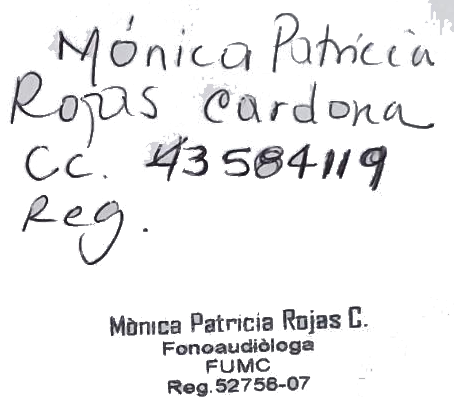 Mónica Patricia
Rojas Cardona
CC. 43584119
Reg.
Mònica Patricia Rojas C.
Fonoaudiòloga
FUMC
Reg. 52758-07